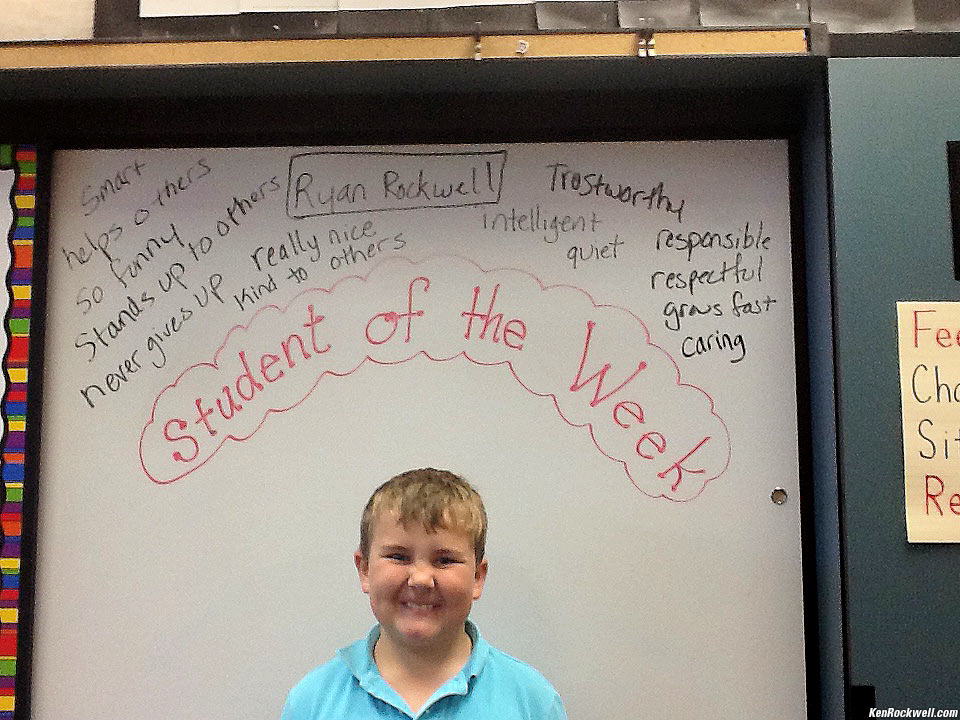 Ryan Rockwell
Smart
helps others
So funny
Stands up to others
never gives up
really nice
Kind to others
intelligent
quiet
Trostworthy
responsible
respectful
grows fast
caring
Student of the Week
Fee
Cho
Sit
Re
KenRockwell.com